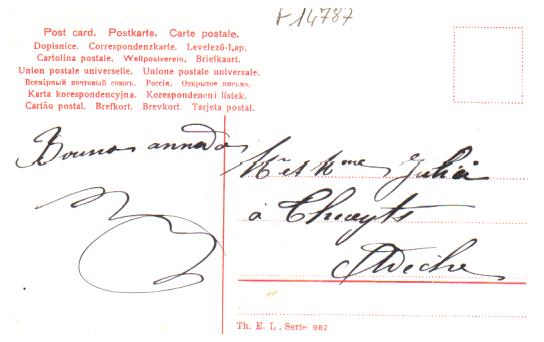 F 14787
Post card. Postkarte. Carte postale.
Dopisnice. Correspondenzkarte. Levelező-Lap.
Cartolina postale. Weltpostverein. Briefkaart.
Union postale universelle. Unione postale universale.
Всемірный почтовый союзъ. Россія. Открытое письмо.
Karta korespondencyjna. Korespondenční lístek.
Cartão postal. Brefkort. Brevkort. Tarjeta postal.
Bouno annado
Mr et Mme
à
Ardèche
Th. E. L., Serie 982